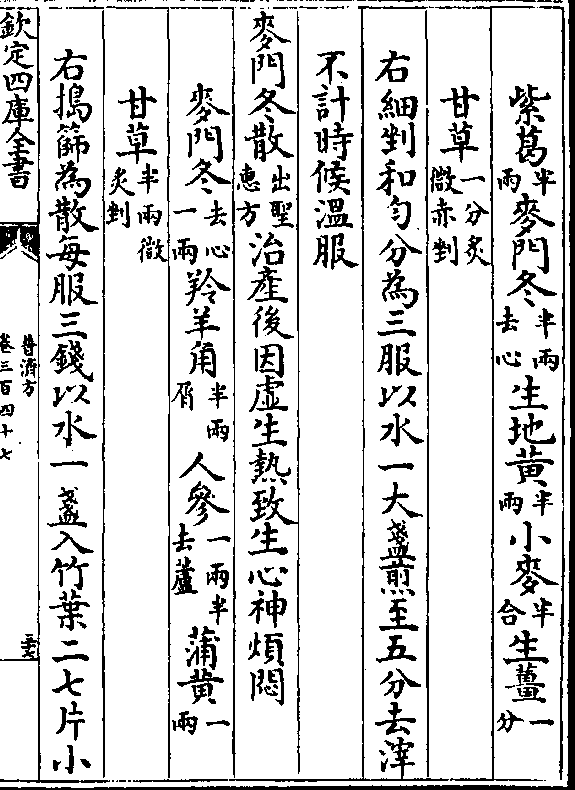 紫葛半兩麥門冬半兩去心生地黃半兩小麥半合生薑一分
甘草一分炙微赤剉
右細剉和勻分為三服以水一大盞煎至五分去滓
不計時候溫服
麥門冬散出聖惠方治產後因虛生熱致生心神煩悶
麥門冬去心一兩羚羊角半兩屑人參一兩半去蘆蒲黃一兩
甘草半兩微炙剉
右搗篩為散每服三錢以水一盞入竹葉二七片小
欽定四庫全書
普濟方
卷三百四十七